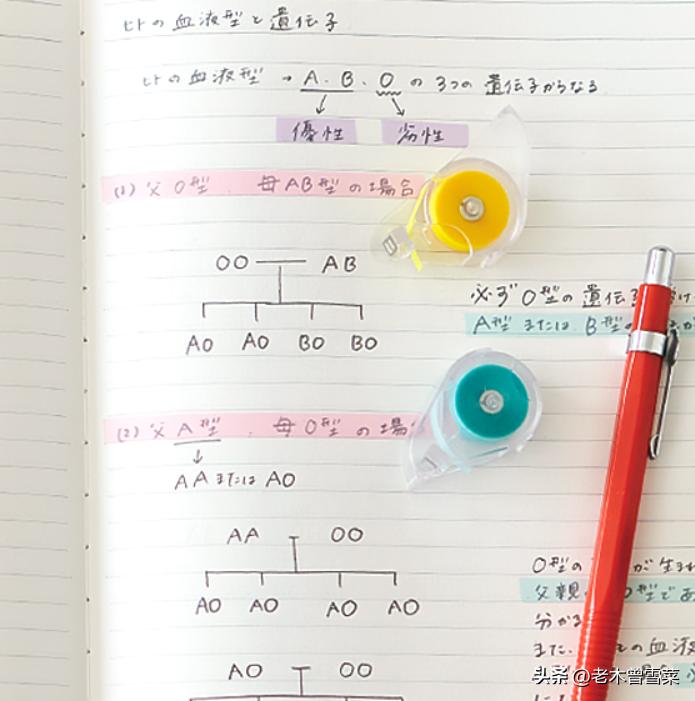 ヒトの血液型と遺伝子
ヒトの血液型 → A.B.Oの3つの遺伝子からなる
優性 劣性
(1) 父O型、母AB型の場合
OO AB
AO AO BO BO
必ずO型の遺伝子
A型またはB型の
(2) 父A型、母O型の場
AAまたはAO
AA OO
AO AO AO AO
O型の が生まれ
父親 O型であ
分かる
また、 の血液
AO OO
头条 @老木曾雪菜